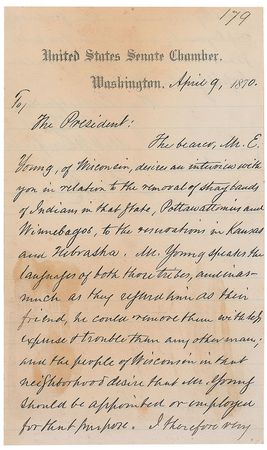 179
United States Senate Chamber.
Washington, April 9, 1870.
To,
The President:
The bearer, Mr. E.
Young, of Wisconsin, desires an interview with
you in relation to the removal of stray bands
of Indians in that State, Pottawattomies and
Winnebagos, to the reservations in Kansas
and Nebraska. Mr. Young speaks the
languages of both those tribes, and inas-
much as they regard him as their
friend, he could remove them with less
expense & trouble than any other man;
and the people of Wisconsin in that
neighborhood desire that Mr. Young
should be appointed or employed
for that purpose. I therefore very